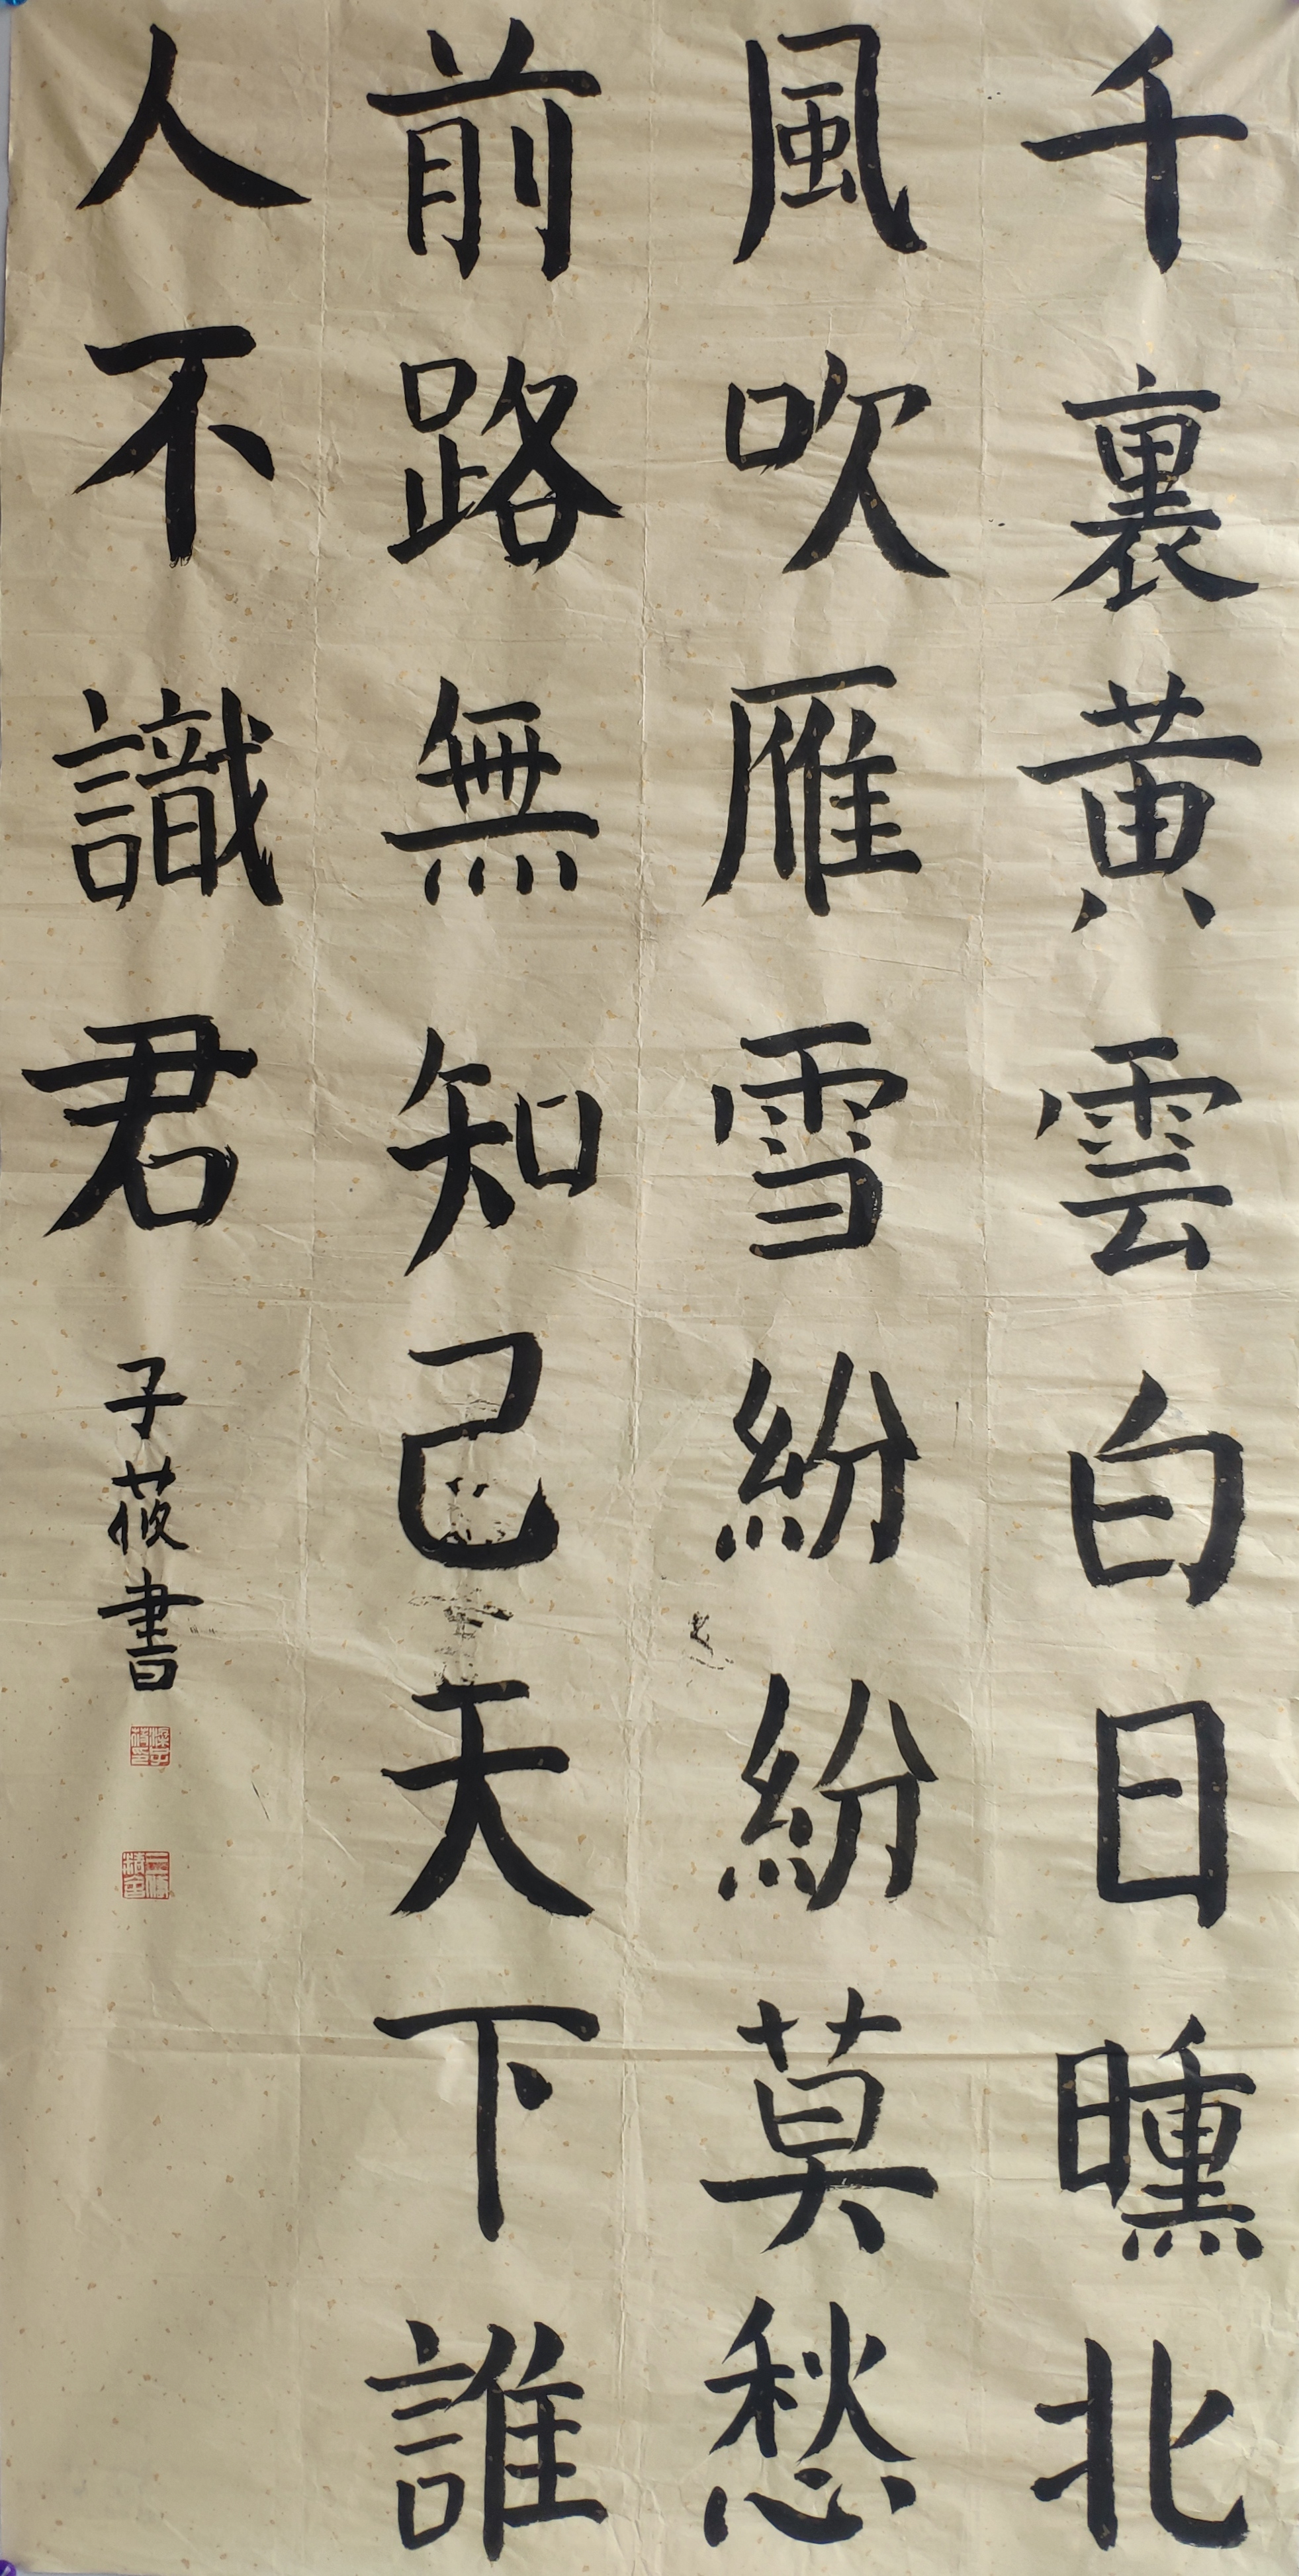 千裏黄雲白日曛北
風吹雁雪紛紛莫愁
前路無知己天下誰
人不識君
子莜書